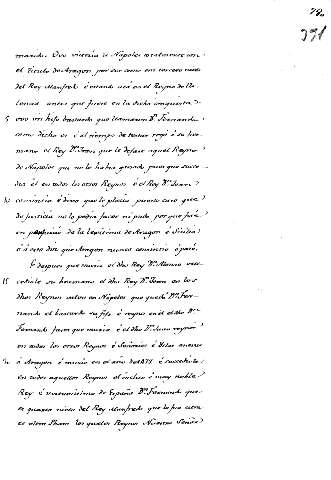 391
mando. Ovo victoria de Napoles totalmente con
el titulo de Aragon por ser como era tercero nieto
del Rey Manfredo é estando acá en el Reyno de Va
lencia antes que fuese en la dicha conquesta
5 ovo un hijo bastardo que llamaron Dn. Fernando
como dicho es i al tiempo de testar rogó a su her
mano el Rey Dn. Joan que le dejase aquel Reyno
de Napoles que no le havia ganado para que suce
da él en todos los otros Reynos é el Rey Dn. Joan
10 consintió é dixo que le placia puesto caso que
de justicia no lo podia facer ni pudo, por que fué
en perjuicio de la legitima de Aragon é Sicilia
é á esta dize que Aragon nunca consintió ó para
É despues que murió el dho Rey Dn. Alonso
15 su hermano el dho Rey Dn. Joan en los
dhos Reynos salvo en Napoles que quedó Dn. Fer
nando el bastardo su fijo é reynó en él el dho Dn.
Fernando fasta que murió é el dho Dn. Juan reynó
en todos los otros Reynos é Señorios é Islas
20 á Aragon é murió en el año de 1479 é sucedióle
en todos aquellos Reynos el inclito é muy noble
Rey é vitoriosisimo de España Dn. Fernando que
es quarto nieto del Rey Manfredo que lo fue
los quales Reynos Nuestro Señor